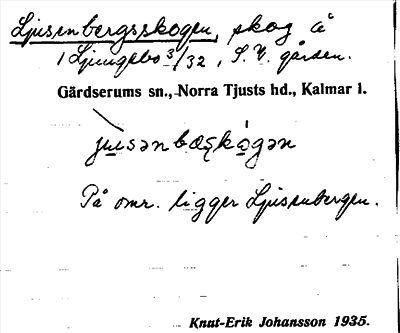 Ljusenbergsskogen, skog å
1 Ljungsbo 3/32, S. V. gården.
Gärdserums sn., Norra Tjusts hd., Kalmar l.
På omr. ligger Ljusenbergen.
Knut-Erik Johansson 1935.